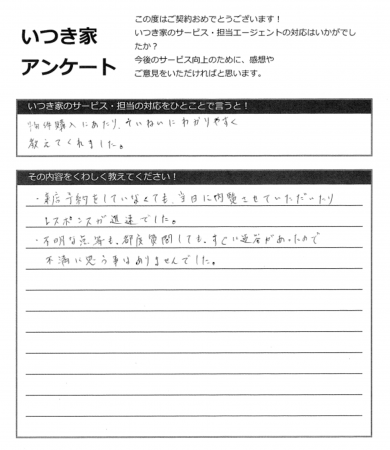 いつき家
アンケート
この度はご契約おめでとうございます！
いつき家のサービス・担当エージェントの対応はいかがでし
たか？
今後のサービス向上のために、感想や
ご意見をいただければと思います。
いつき家のサービス・担当の対応をひとことで言うと！
物件購入にあたり、ていねいにわかりやすく
教えてくれました。
その内容をくわしく教えてください！
・来店予約をしていなくても、当日に内覧させていただいたり
レスポンスが迅速でした。
・不明な点等も、都度質問しても、すぐに返答があったので
不満に思う事はありませんでした。